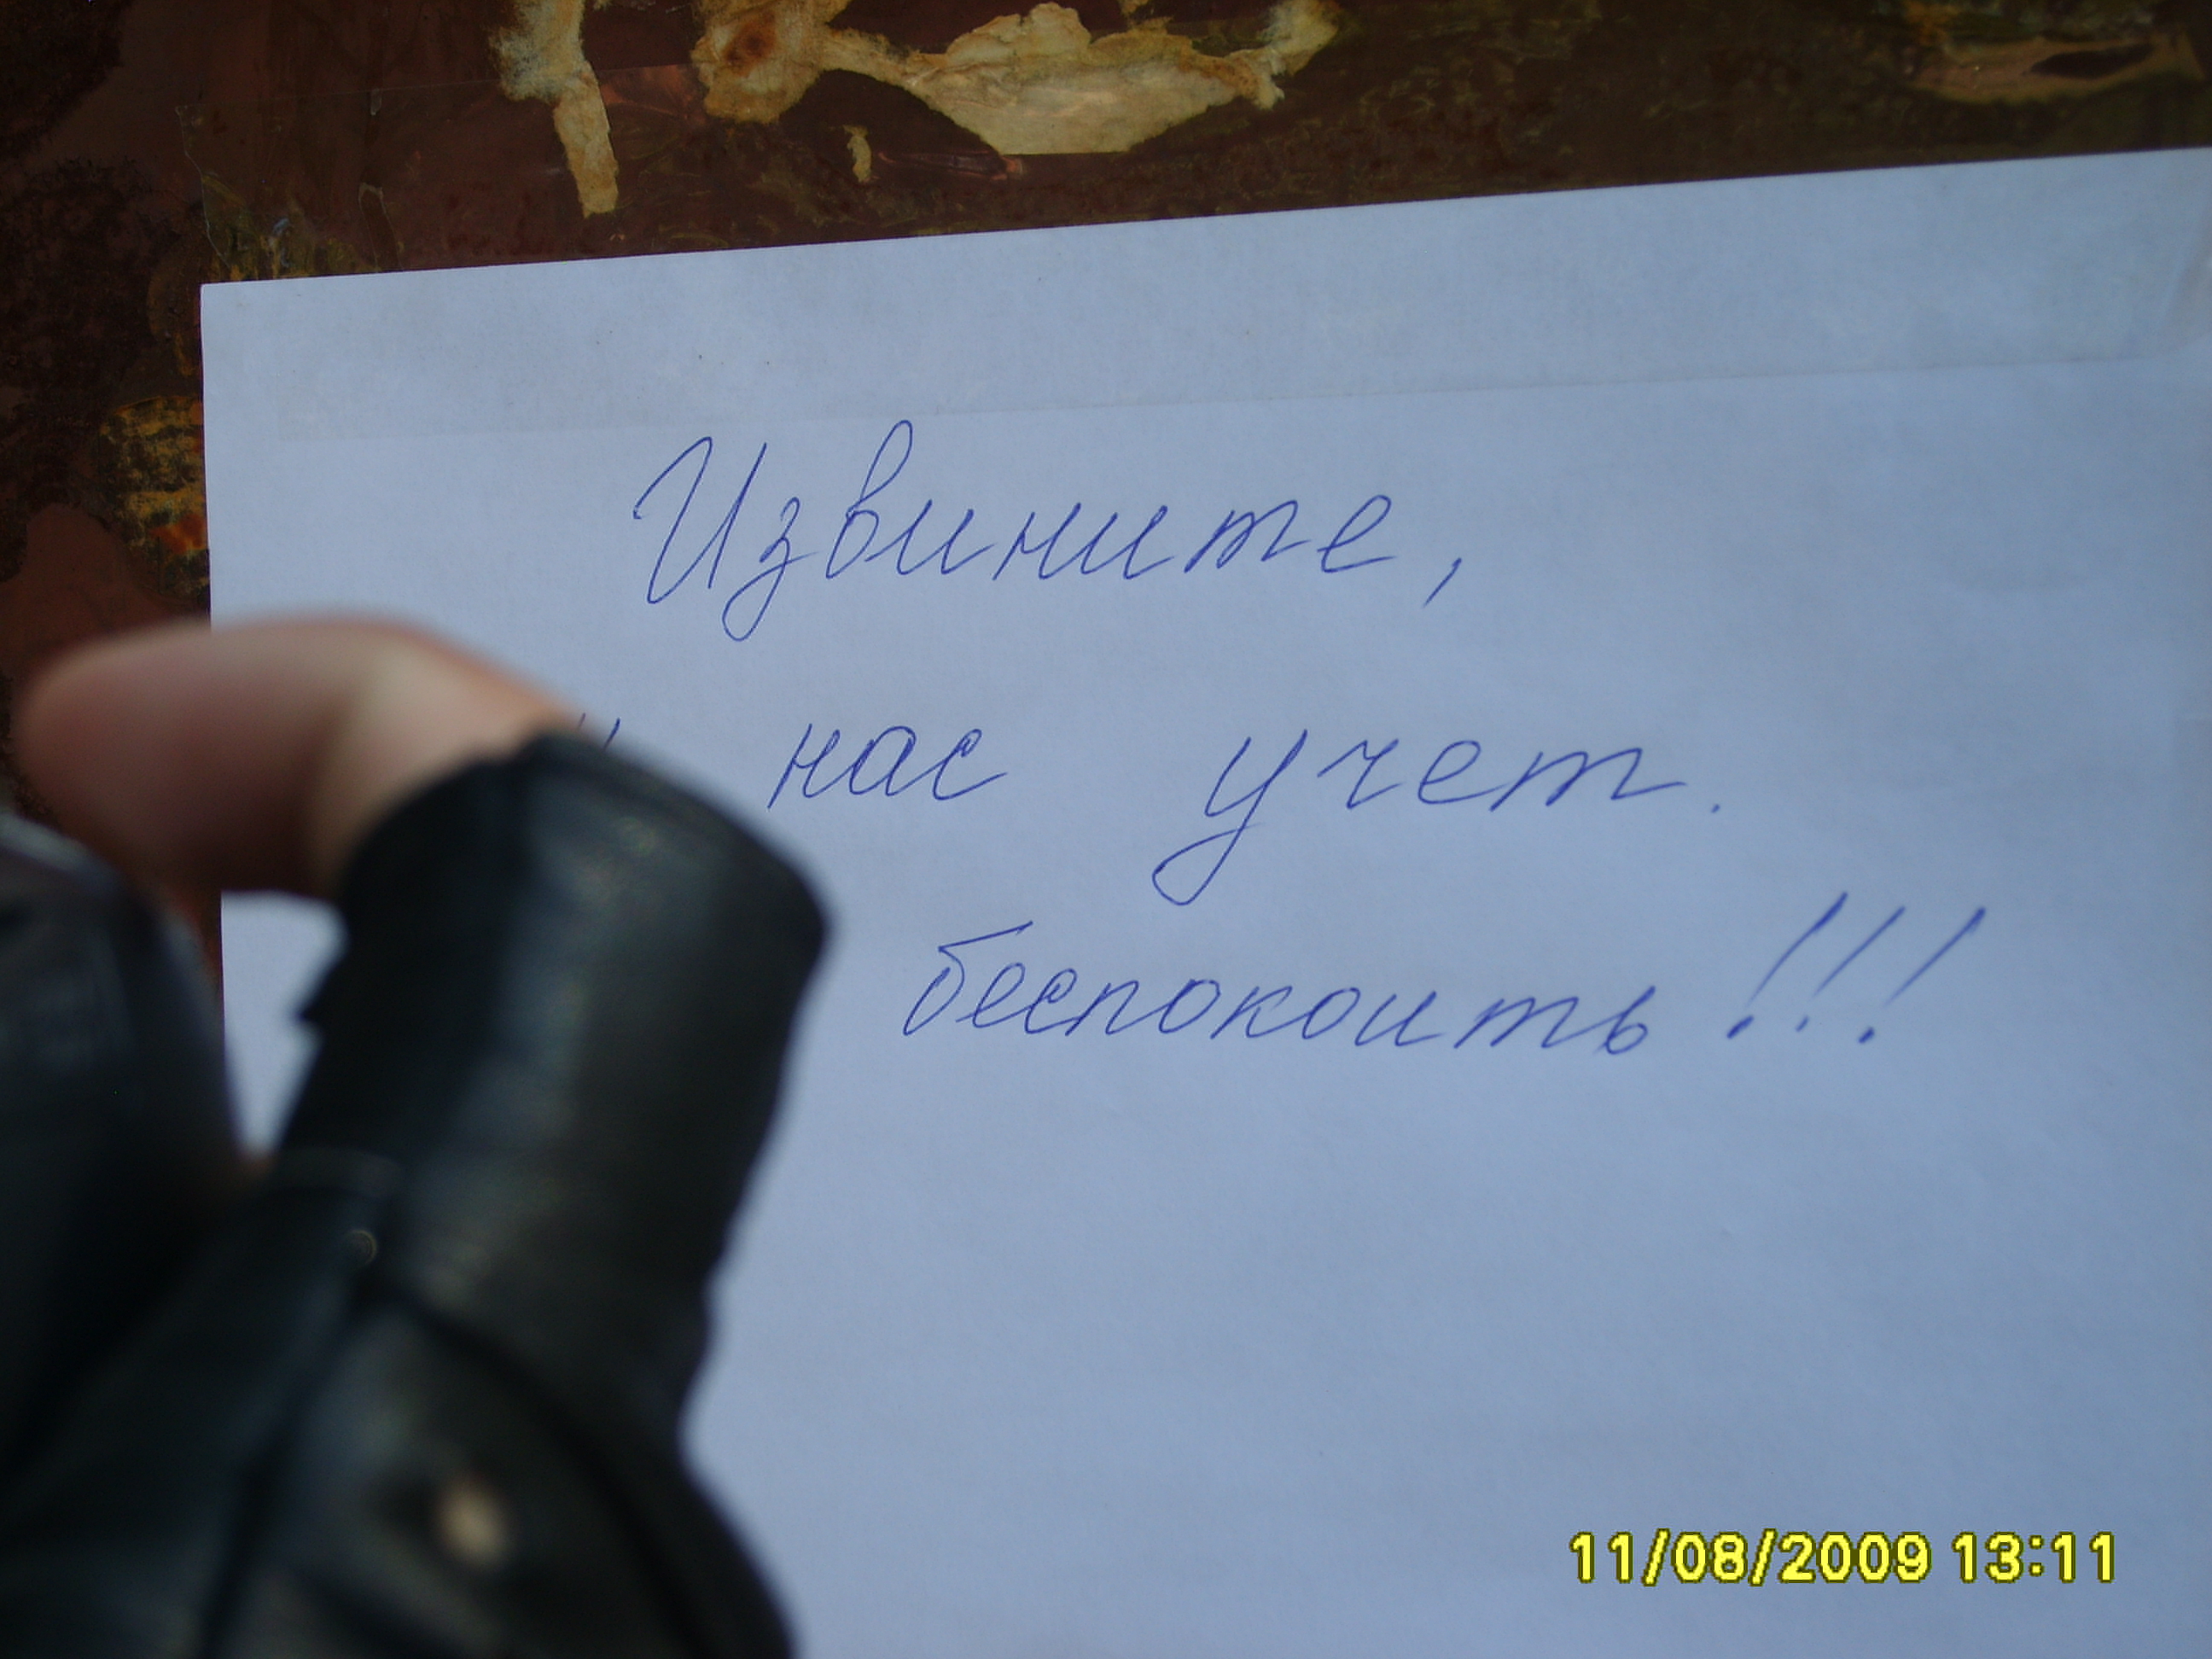 Извините,
нас учет.
беспокоить!!!
11/08/2009 13:11